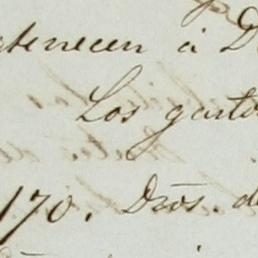 tenecen á D
Los gasto
170. Dros. d